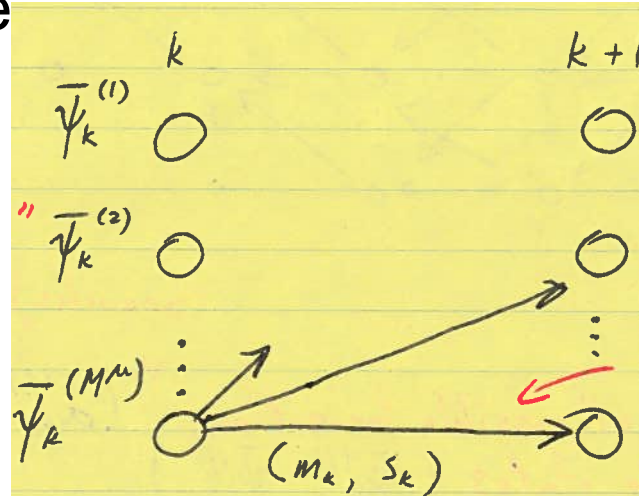 e
k k +
ψ̄ₖ⁽¹⁾
" ψ̄ₖ⁽²⁾
⋮ ⋮
ψ̄ₖ^(M^μ)
(mₖ, sₖ)